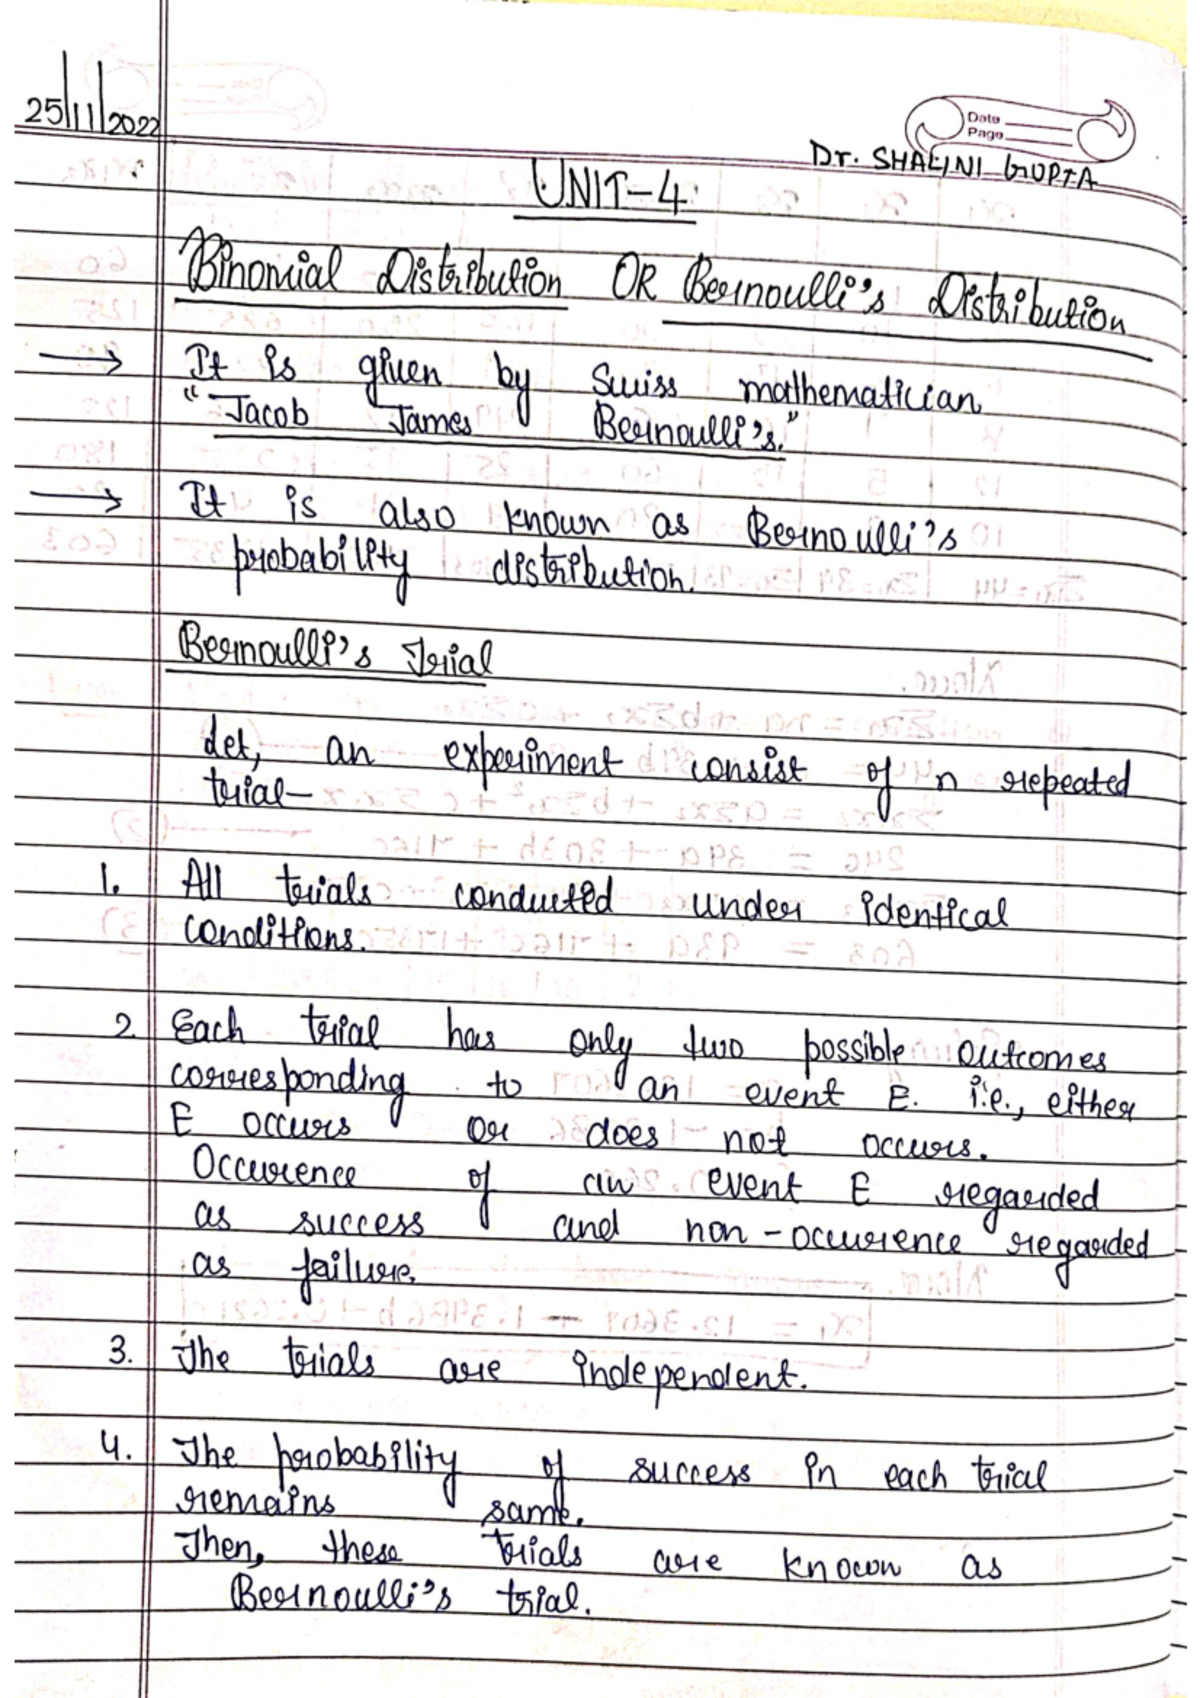 25/11/2022
Date
Page
Dr. SHALINI GUPTA
UNIT-4
Binomial Distribution OR Bernoulli's Distribution
→ It is given by Swiss mathematician
"Jacob James Bernoulli's."
→ It is also known as Bernoulli's
probability distribution.
Bernoulli's Trial
Let, an experiment consist of n repeated
trial-
1. All trials conducted under identical
conditions.
2. Each trial has only two possible outcomes
corresponding to an event E. i.e., either
E occurs or does not occurs.
Occurence of an event E regarded
as success and non-occurence regarded
as failure.
3. The trials are independent.
4. The probability of success in each trial
remains same.
Then, these trials are known as
Bernoulli's trial.